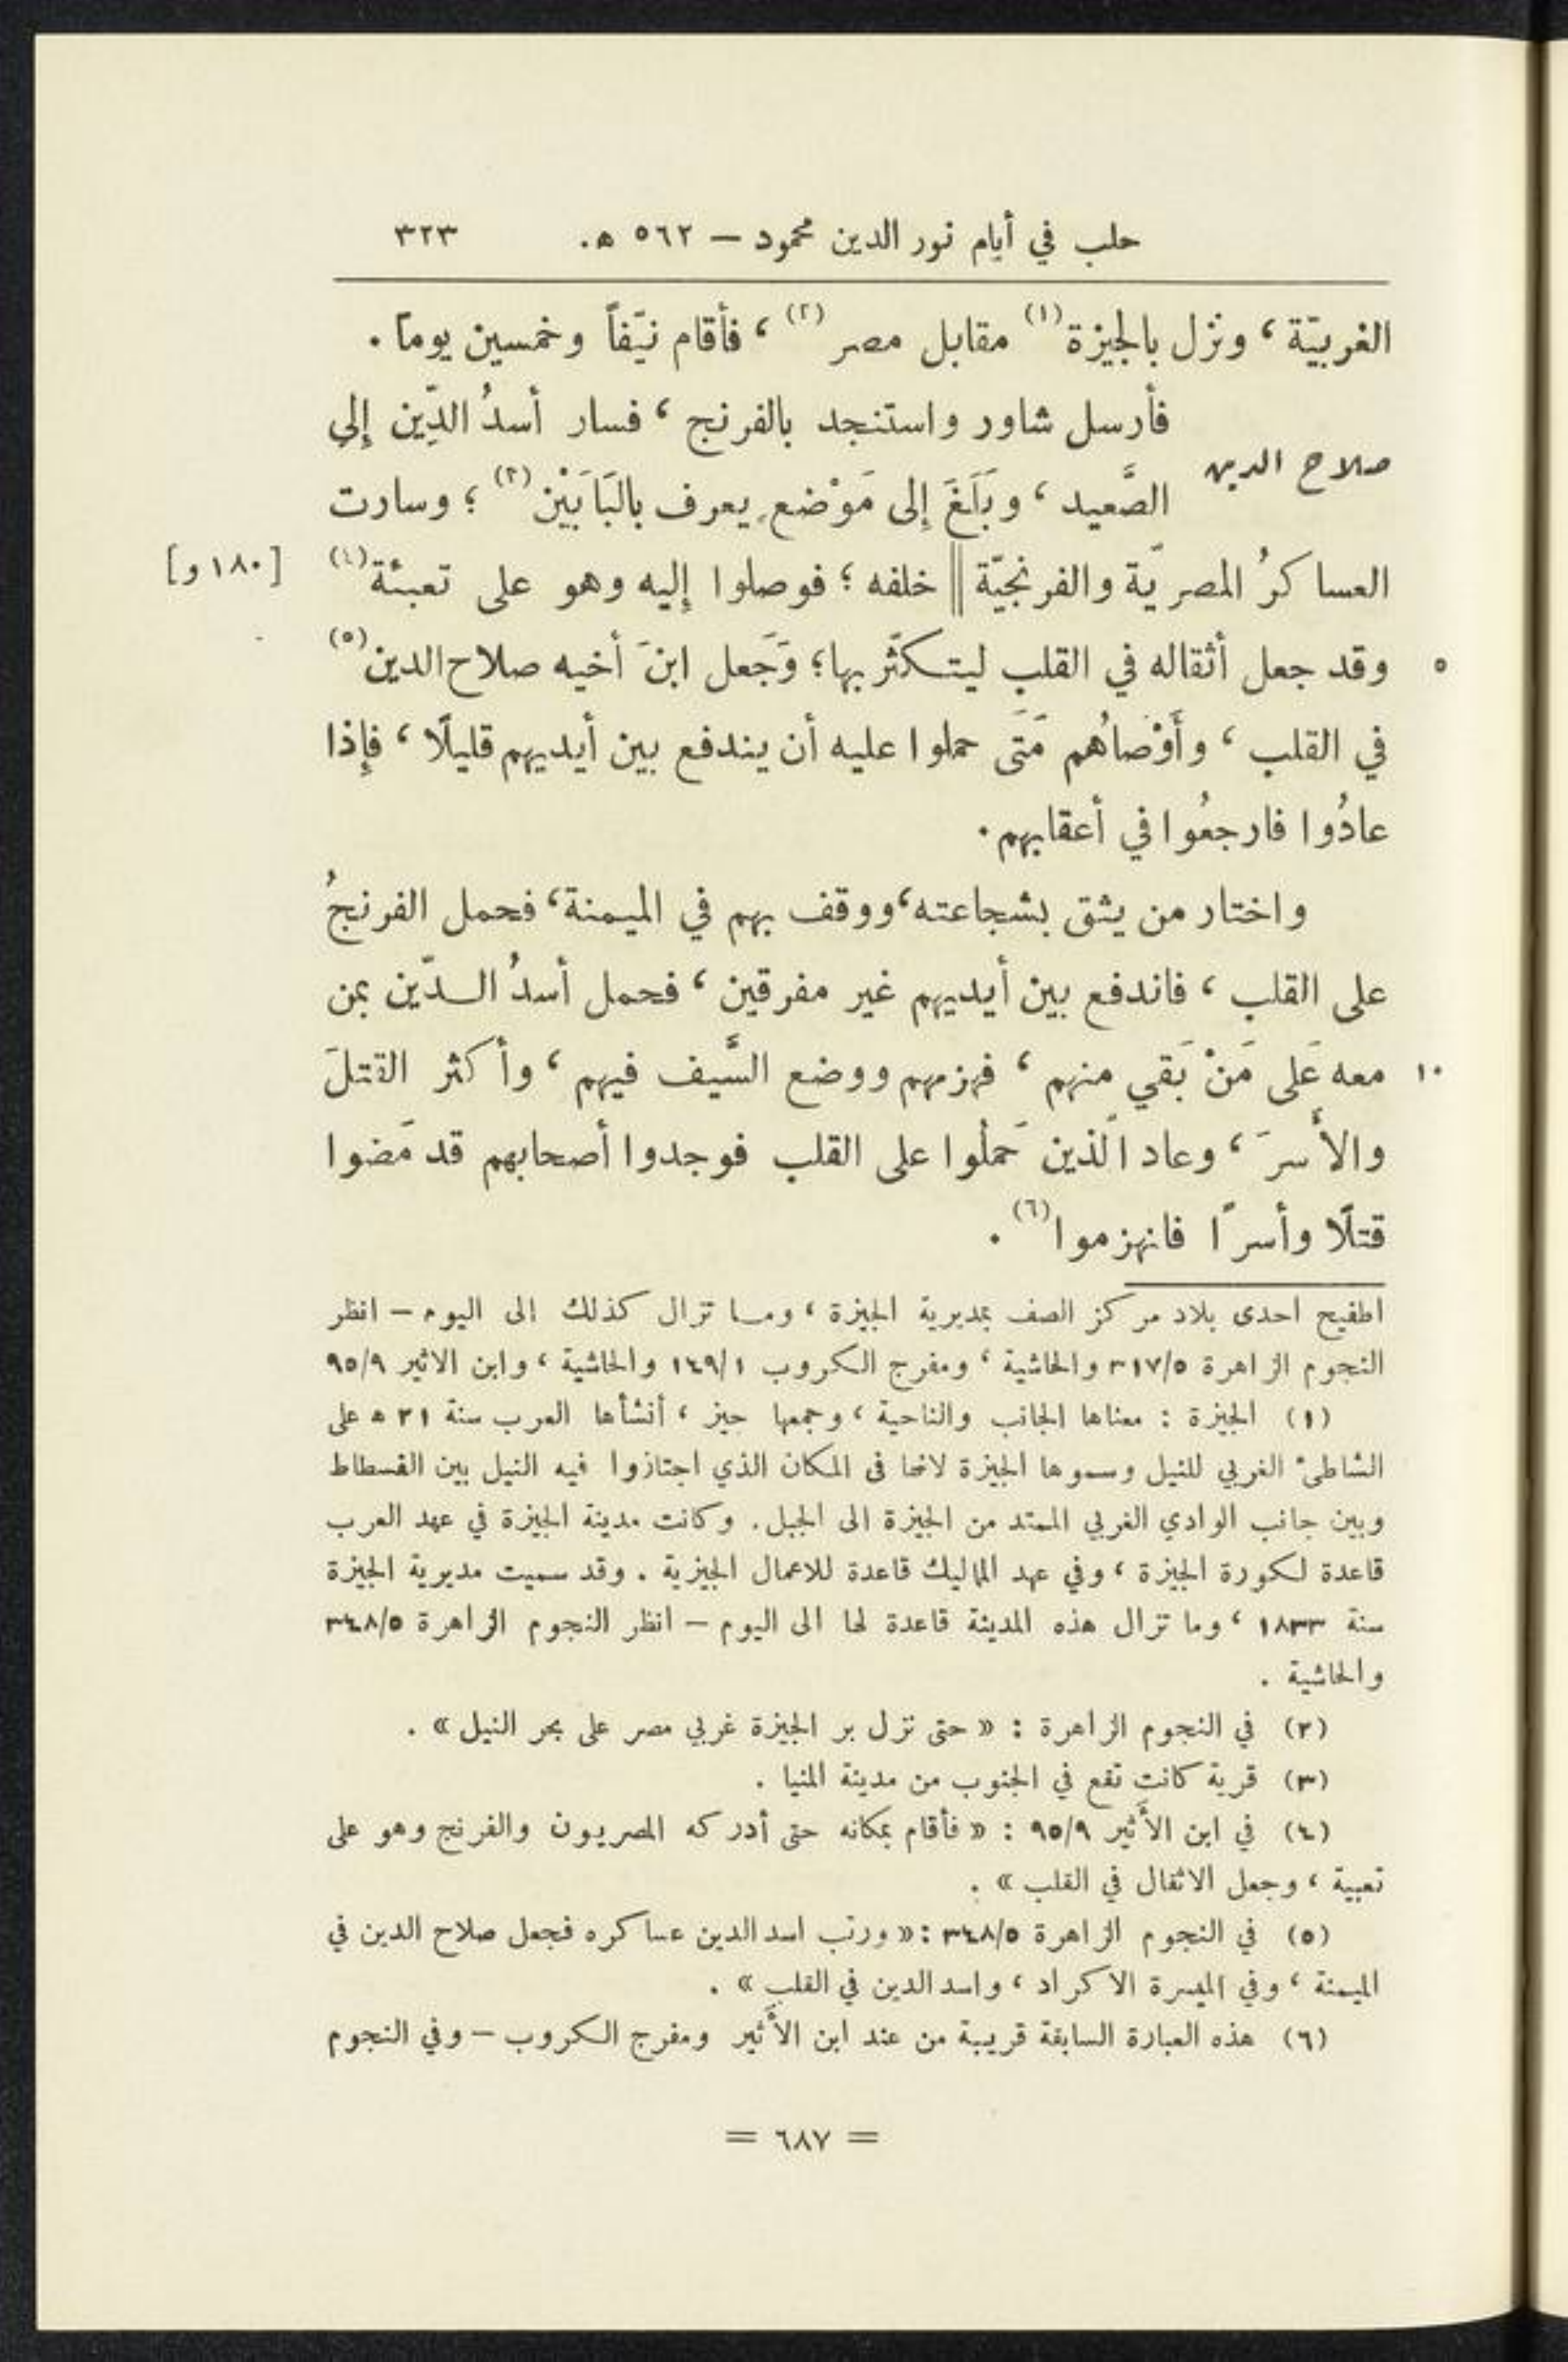 حلب في أيام نور الدين محمود — ٥٦٢ ه. ٣٢٣
الغربيّة ، ونزل بالجيزة(١) مقابل مصر(٢) ، فأقام نيّفاً وخمسين يوماً .
فأرسل شاور واستنجد بالفرنج ، فسار أسدُ الدِّين إلى
صلاح الدين
الصَّعيد ، وبَلَغَ إلى مَوْضع يعرف بالبَابَيْن(٣) ؛ وسارت
العساكرُ المصريّة والفرنجيّة || خلفه ؛ فوصلوا إليه وهو على تعبئة(٤) [١٨٠ و]
٥ وقد جعل أثقاله في القلب ليتكثّر بها ؛ وَجَعل ابنَ أخيه صلاح الدين(٥)
في القلب ، وأَوْصاهُم مَتَى حملوا عليه أن يندفع بين أيديهم قليلًا ، فإذا
عادُوا فارجعُوا في أعقابهم .
واختار من يثق بشجاعته ، ووقف بهم في الميمنة ، فحمل الفرنجُ
على القلب ، فاندفع بين أيديهم غير مفرقين ، فحمل أسدُ الدّين بمن
١٠ معه عَلى مَنْ بَقي منهم ، فهزمهم ووضع السَّيف فيهم ، وأكثر القتلَ
والأسرَ ، وعاد الّذين حَمَلُوا على القلب فوجدوا أصحابهم قد مَضوا
قتلًا وأسرًا فانهزموا(٦) .
اطفيح احدى بلاد مركز الصف بمديرية الجيزة ، وما تزال كذلك الى اليوم — انظر
النجوم الزاهرة ٣١٧/٥ والحاشية ، ومفرج الكروب ١٤٩/١ والحاشية ، وابن الاثير ٩٥/٩
(١) الجيزة : معناها الجانب والناحية ، وجمعها جيز ، أنشأها العرب سنة ٢١ ه على
الشاطئ الغربي للنيل وسموها الجيزة لانها في المكان الذي اجتازوا فيه النيل بين الفسطاط
وبين جانب الوادي الغربي الممتد من الجيزة الى الجبل . وكانت مدينة الجيزة في عهد العرب
قاعدة لكورة الجيزة ، وفي عهد المماليك قاعدة للاعمال الجيزية . وقد سميت مديرية الجيزة
سنة ١٨٣٣ ، وما تزال هذه المدينة قاعدة لها الى اليوم — انظر النجوم الزاهرة ٣٤٨/٥
والحاشية .
(٢) في النجوم الزاهرة : « حتى نزل بر الجيزة غربي مصر على بحر النيل » .
(٣) قرية كانت تقع في الجنوب من مدينة المنيا .
(٤) في ابن الأثير ٩٥/٩ : « فأقام بمكانه حتى أدركه المصريون والفرنج وهو على
تعبية ، وجعل الاثقال في القلب » .
(٥) في النجوم الزاهرة ٣٤٨/٥ : « ورتب اسد الدين عساكره فجعل صلاح الدين في
الميمنة ، وفي الميسرة الاكراد ، واسد الدين في القلب » .
(٦) هذه العبارة السابقة قريبة من عند ابن الأثير ومفرج الكروب — وفي النجوم
= ٦٨٧ =